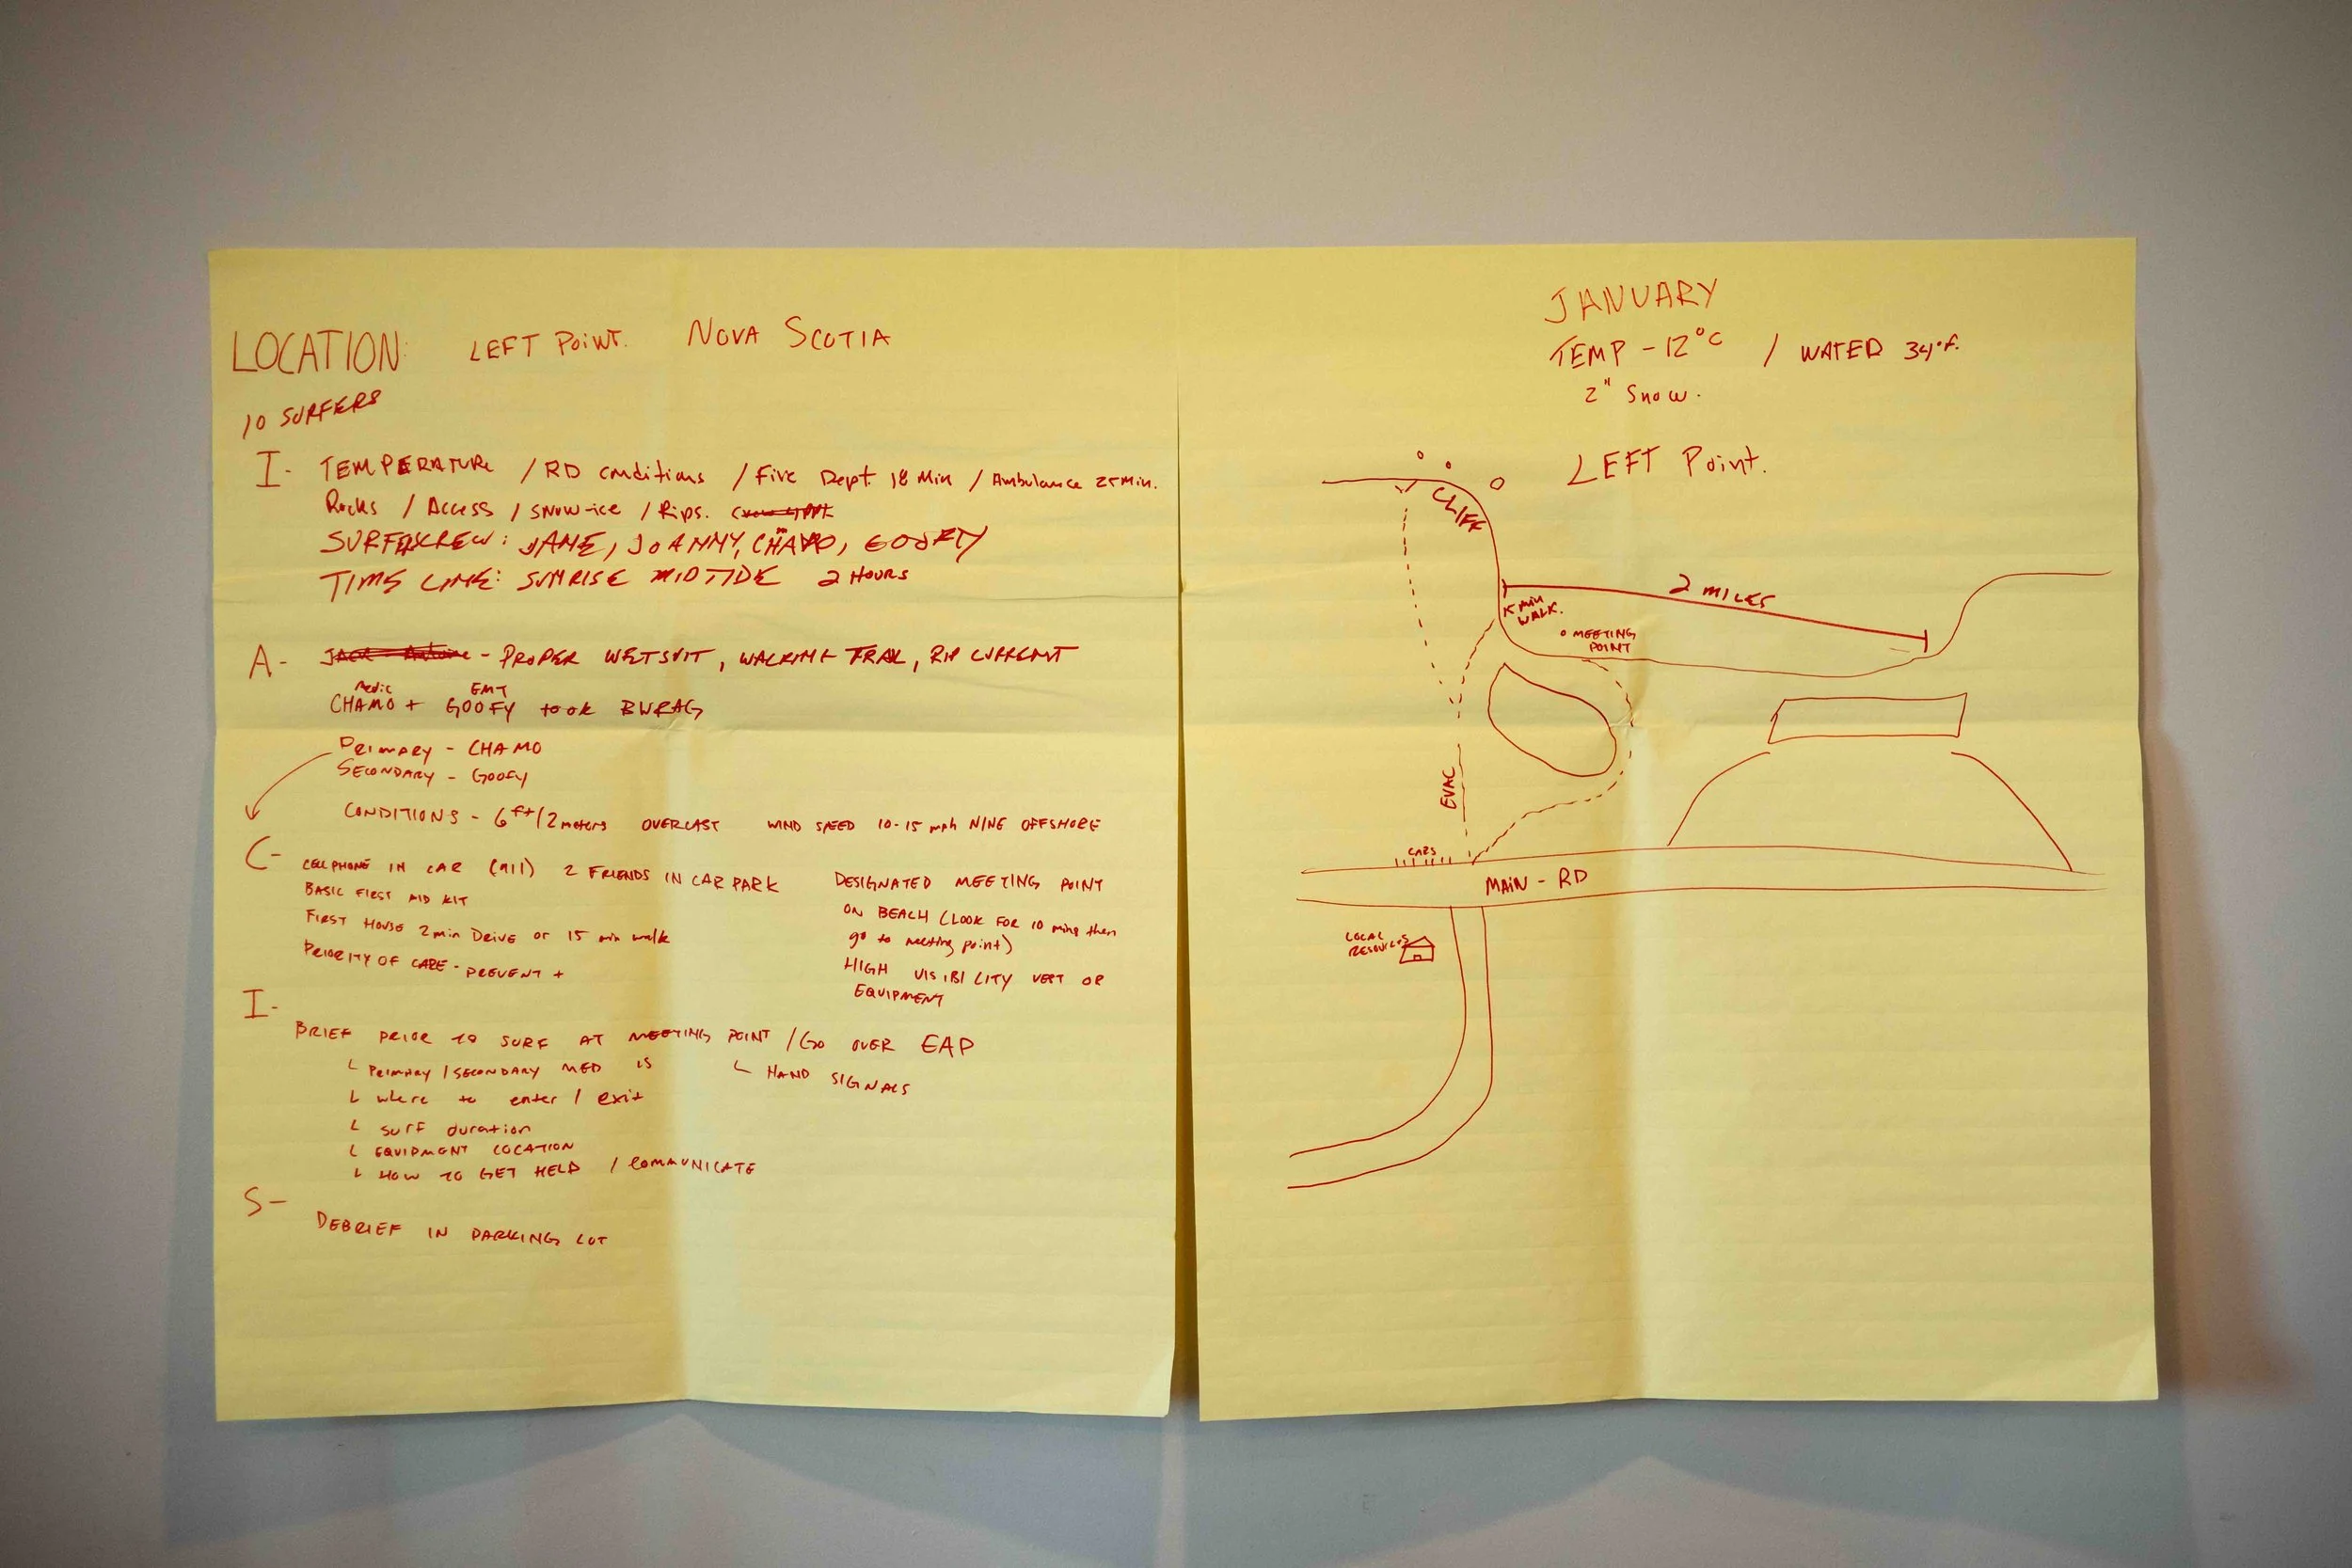 LOCATION: LEFT POINT. NOVA SCOTIA
10 SURFERS
I- TEMPERATURE / RD conditions / Fire Dept. 18 Min / Ambulance 25 Min.
Rocks / Access / SNOW-ice / Rips.
SURF CREW: JANE, JOANNY, CHAMO, GOOFY
TIME LINE: SUNRISE MIDTIDE 2 HOURS
A- - PROPER WETSUIT, WALKING TRAIL, RIP CURRENT
Medic EMT
CHAMO + GOOFY took BWRAG
PRIMARY - CHAMO
SECONDARY - GOOFY
CONDITIONS - 6ft/2meters OVERCAST WIND SPEED 10-15 mph OFFSHORE
C- CELLPHONE IN CAR (911) 2 FRIENDS IN CAR PARK
BASIC FIRST AID KIT
FIRST HOUSE 2min DRIVE or 15 min walk
PRIORITY OF CARE - PREVENT +
DESIGNATED MEETING POINT
ON BEACH (LOOK FOR 10 mins then
go to meeting point)
HIGH VISIBILITY VEST OR
EQUIPMENT
I-
BRIEF PRIOR TO SURF AT MEETING POINT / GO OVER EAP
└ PRIMARY / SECONDARY MED IS
└ HAND SIGNALS
└ where to enter / exit
└ surf duration
└ EQUIPMENT LOCATION
└ HOW TO GET HELP / COMMUNICATE
S-
DEBRIEF IN PARKING LOT
JANUARY
TEMP -12°C / WATER 34°F.
2" Snow.
LEFT Point.
CLIFF
2 MILES
min
WALK.
MEETING
POINT
EVAC
CARS
MAIN-RD
LOCAL
RESOURCES